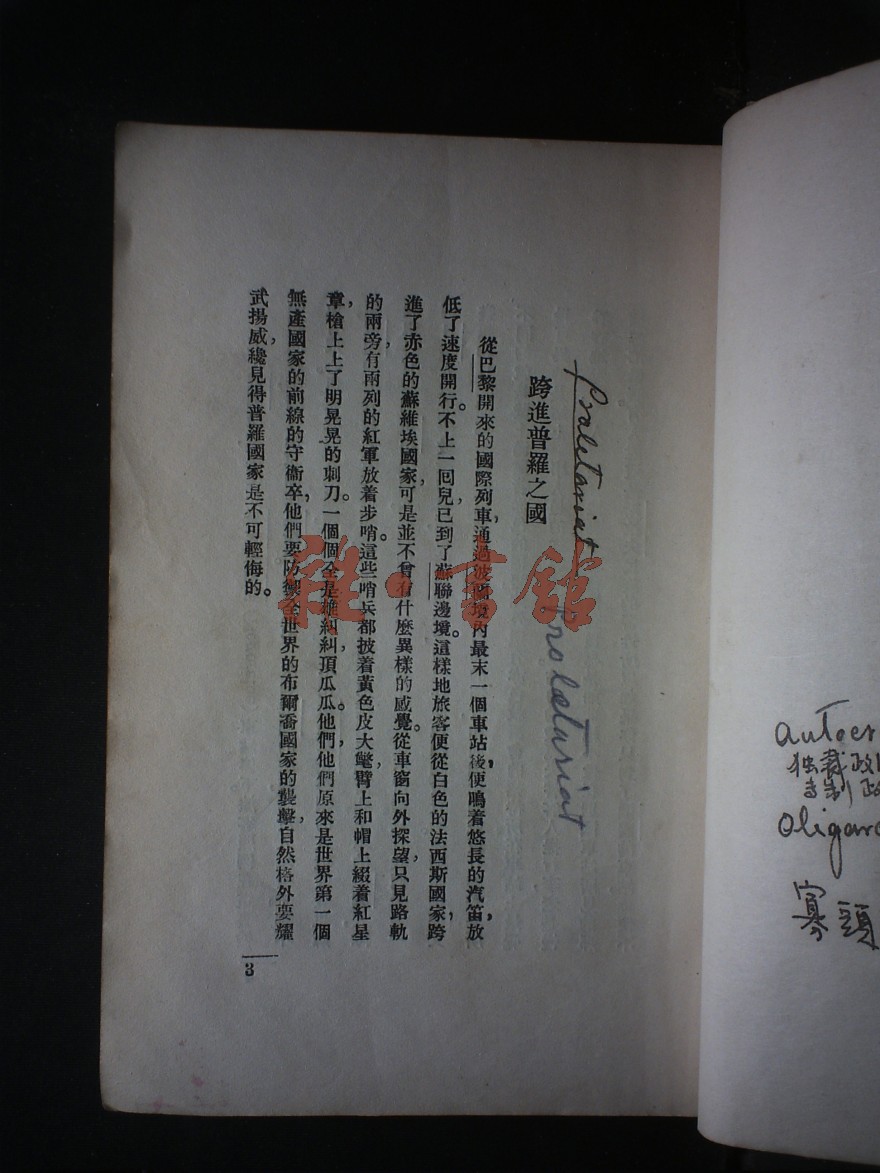 autocr
独裁政
专制政
Oligarc
寡頭
Proletariat
Proletariat
跨進普羅之國
從巴黎開來的國際列車，通過波蘭境內最末一個車站後，便鳴着悠長的汽笛，放
低了速度開行。不上一囘兒已到了蘇聯邊境。這樣地旅客便從白色的法西斯國家，跨
進了赤色的蘇維埃國家，可是並不曾有什麼異樣的感覺。從車窗向外探望，只見路軌
的兩旁，有兩列的紅軍放着步哨。這些哨兵都披着黃色皮大氅，臂上和帽上綴着紅星
章，槍上上了明晃晃的刺刀。一個個全是雄糾糾，頂瓜瓜。他們，他們原來是世界第一個
無產國家的前線的守衞卒，他們要防禦全世界的布爾喬國家的襲擊，自然格外要耀
武揚威，纔見得普羅國家是不可輕侮的。
3
雜·書館